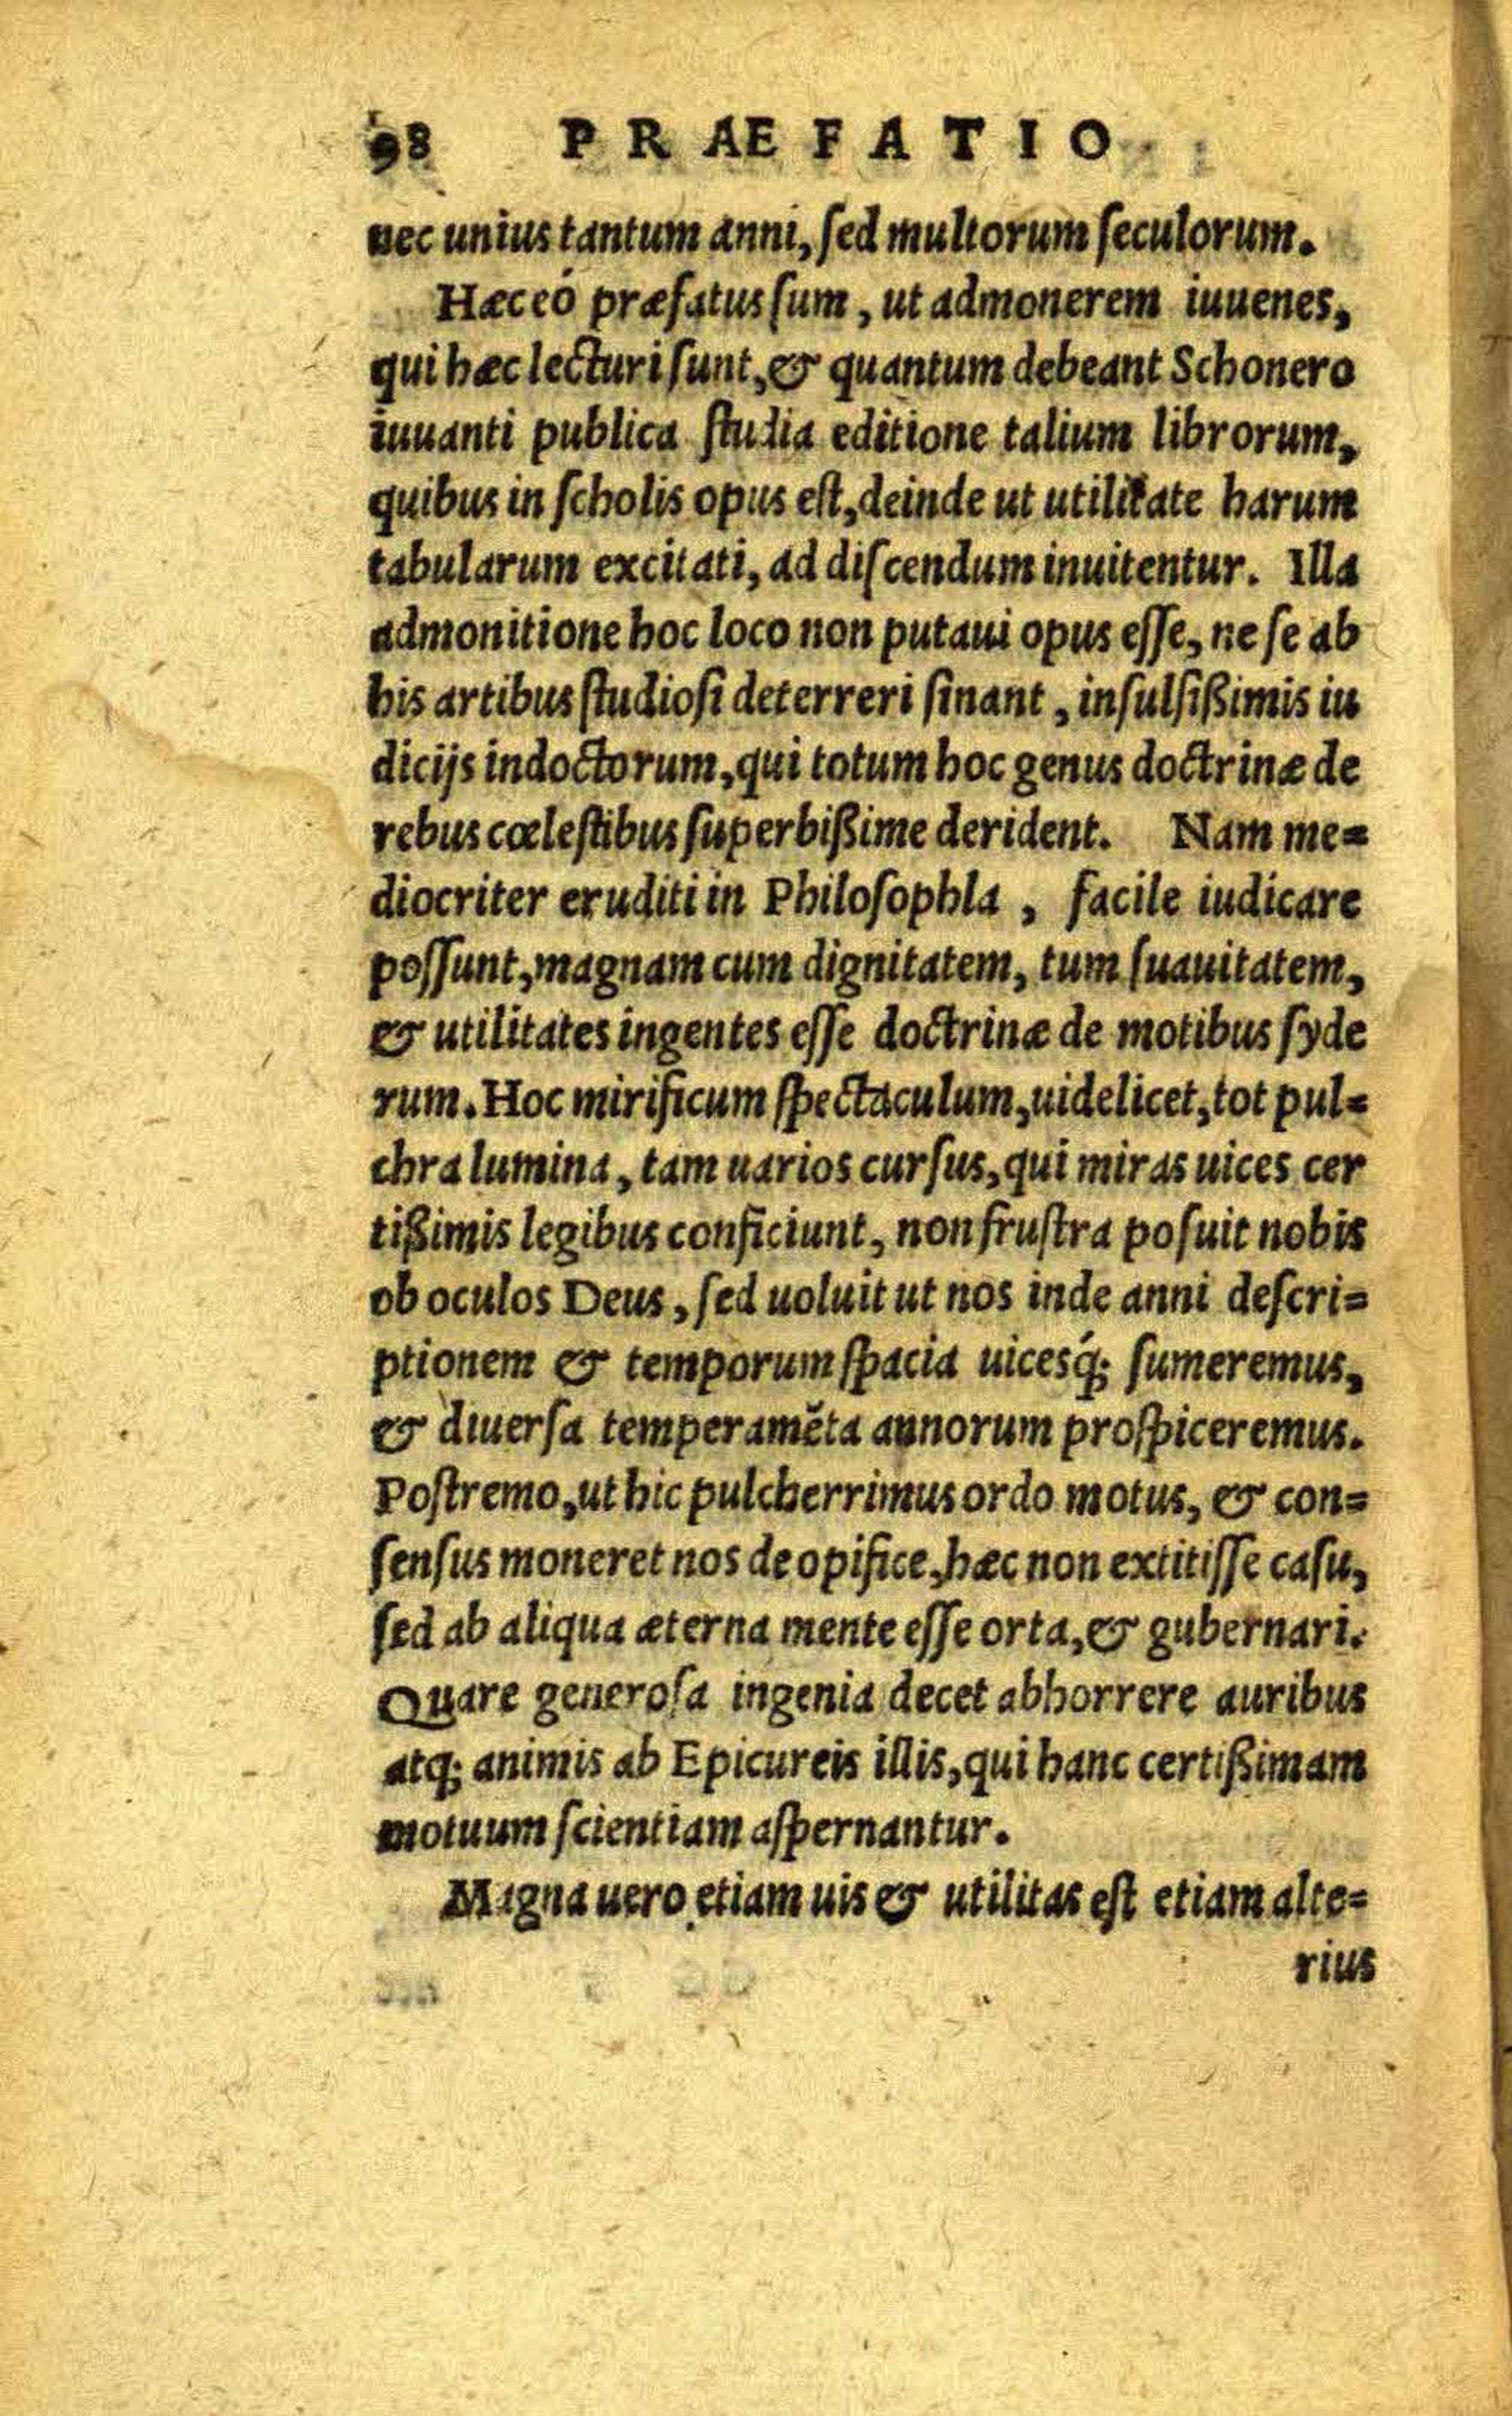 98 PRAEFATIO
nec unius tantum anni, ſed multorum ſeculorum.
Hæc eó præfatus ſum, ut admonerem iuuenes,
qui hæc lecturi ſunt, & quantum debeant Schonero
iuuanti publica ſtudia editione talium librorum,
quibus in ſcholis opus eſt, deinde ut utilitate harum
tabularum excitati, ad diſcendum inuitentur. Illa
admonitione hoc loco non putaui opus eſſe, ne ſe ab
his artibus ſtudioſi deterreri ſinant, inſulſißimis iu
dicijs indoctorum, qui totum hoc genus doctrinæ de
rebus cœleſtibus ſuperbißime derident. Nam me=
diocriter eruditi in Philoſophla, facile iudicare
poſſunt, magnam cum dignitatem, tum ſuauitatem,
& utilitates ingentes eſſe doctrinæ de motibus ſyde
rum. Hoc mirificum ſpectaculum, uidelicet, tot pul=
chra lumina, tam uarios curſus, qui miras uices cer
tißimis legibus conficiunt, non fruſtra poſuit nobis
ob oculos Deus, ſed uoluit ut nos inde anni deſcri=
ptionem & temporum ſpacia uicesq́; ſumeremus,
& diuerſa temperamẽta annorum proſpiceremus.
Poſtremo, ut hic pulcherrimus ordo motus, & con=
ſenſus moneret nos de opifice, hæc non extitiſſe caſu,
ſed ab aliqua æterna mente eſſe orta, & gubernari.
Quare generoſa ingenia decet abhorrere auribus
atq; animis ab Epicureis illis, qui hanc certißimam
motuum ſcientiam aſpernantur.
Magna uero etiam uis & utilitas eſt etiam alte=
rius